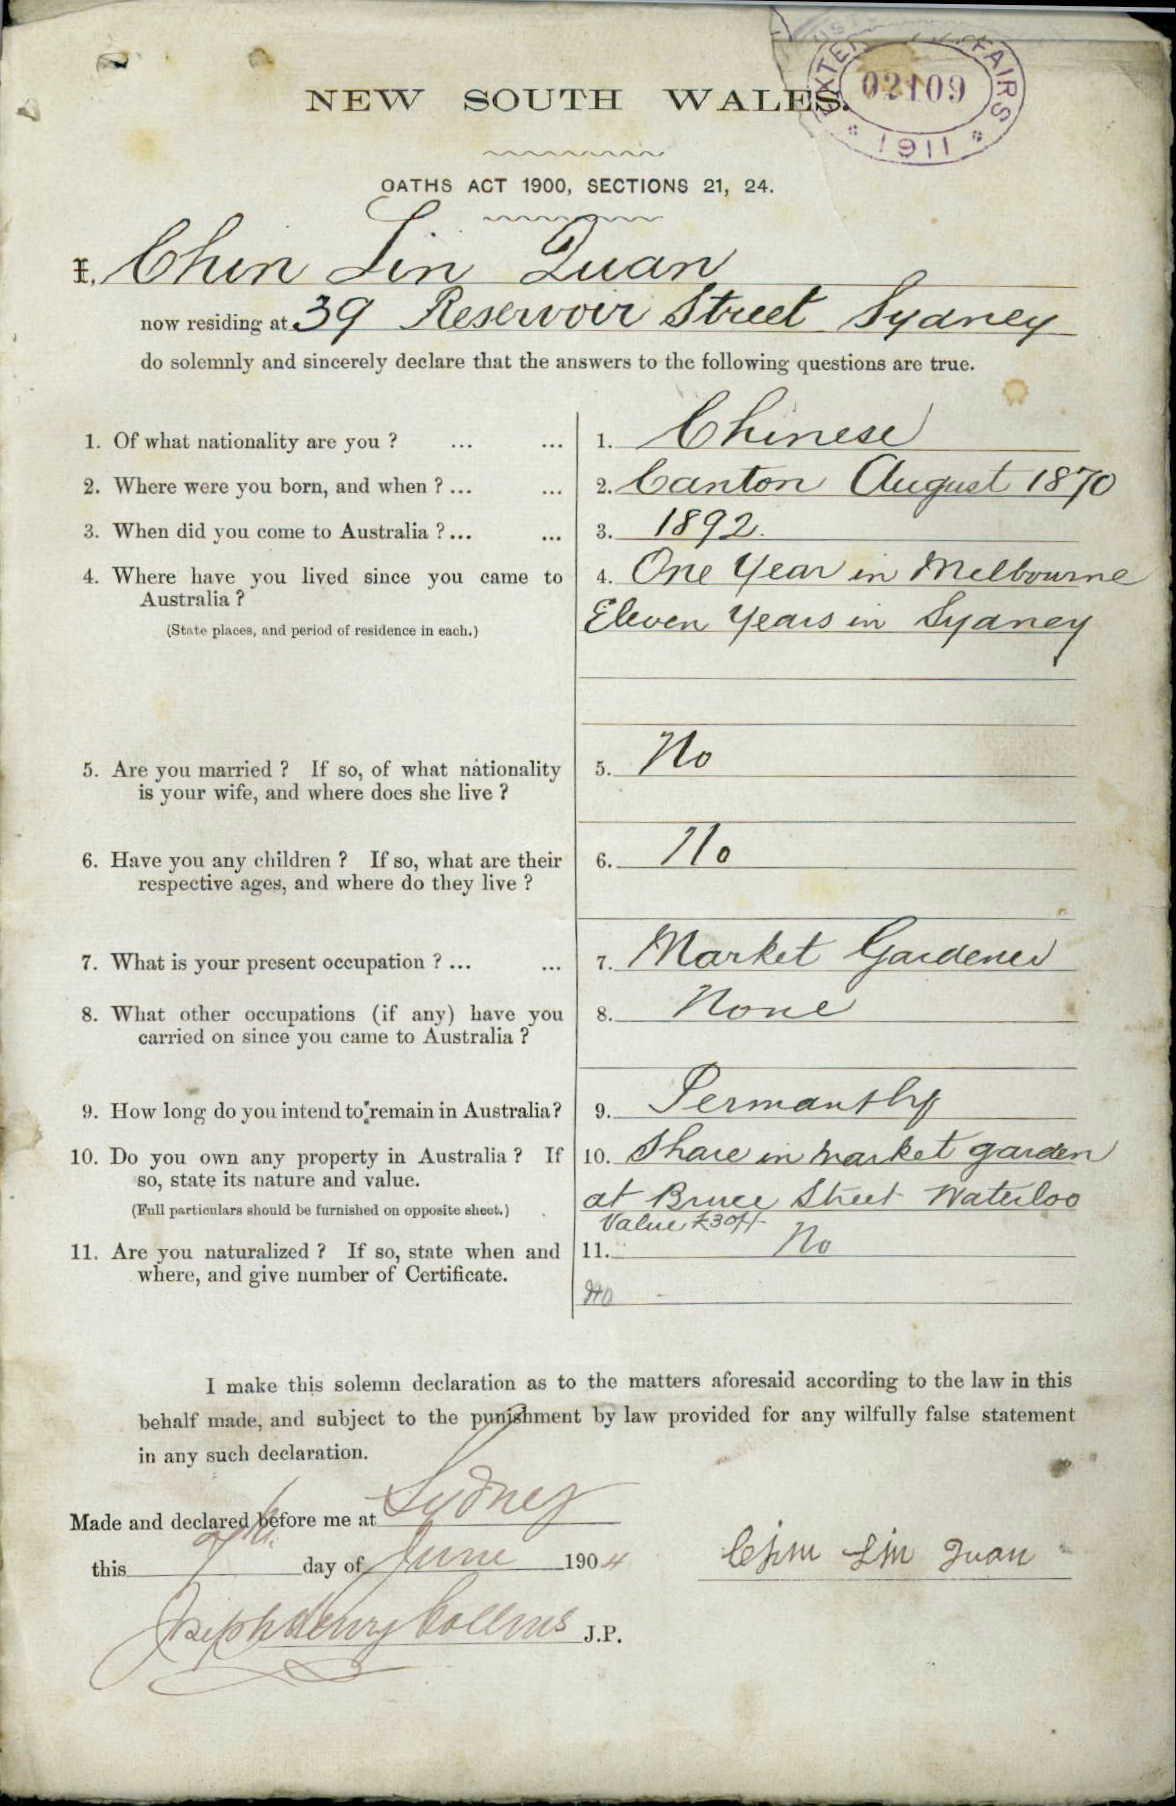 EXTERNAL AFFAIRS
02109
1911
NEW SOUTH WALES.
OATHS ACT 1900, SECTIONS 21, 24.
I, Chin Lin Quan
now residing at 39 Reservoir Street Sydney
do solemnly and sincerely declare that the answers to the following questions are true.
1. Of what nationality are you ? ... ... 1. Chinese
2. Where were you born, and when ? ... ... 2. Canton August 1870
3. When did you come to Australia ? ... ... 3. 1892.
4. Where have you lived since you came to 4. One Year in Melbourne
Australia ? Eleven Years in Sydney
(State places, and period of residence in each.)
5. Are you married ? If so, of what nationality 5. No
is your wife, and where does she live ?
6. Have you any children ? If so, what are their 6. No
respective ages, and where do they live ?
7. What is your present occupation ? ... ... 7. Market Gardener
8. What other occupations (if any) have you 8. None
carried on since you came to Australia ?
9. How long do you intend to remain in Australia ? 9. Permantly
10. Do you own any property in Australia ? If 10. Share in market garden
so, state its nature and value. at Bruce Street Waterloo
(Full particulars should be furnished on opposite sheet.) Value £30/-
11. Are you naturalized ? If so, state when and 11. No
where, and give number of Certificate.
I make this solemn declaration as to the matters aforesaid according to the law in this
behalf made, and subject to the punishment by law provided for any wilfully false statement
in any such declaration.
Made and declared before me at Sydney
this day of June 1904 Chin Lin Quan
Joseph Henry Collins J.P.